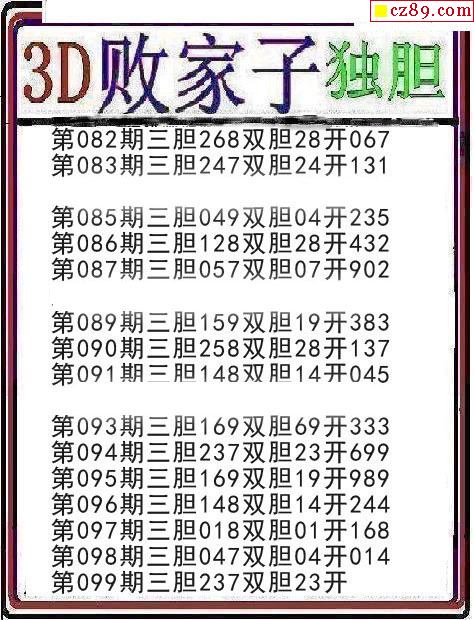 cz89.com
3D败家子独胆
第082期三胆268双胆28开067
第083期三胆247双胆24开131
第085期三胆049双胆04开235
第086期三胆128双胆28开432
第087期三胆057双胆07开902
第089期三胆159双胆19开383
第090期三胆258双胆28开137
第091期三胆148双胆14开045
第093期三胆169双胆69开333
第094期三胆237双胆23开699
第095期三胆169双胆19开989
第096期三胆148双胆14开244
第097期三胆018双胆01开168
第098期三胆047双胆04开014
第099期三胆237双胆23开